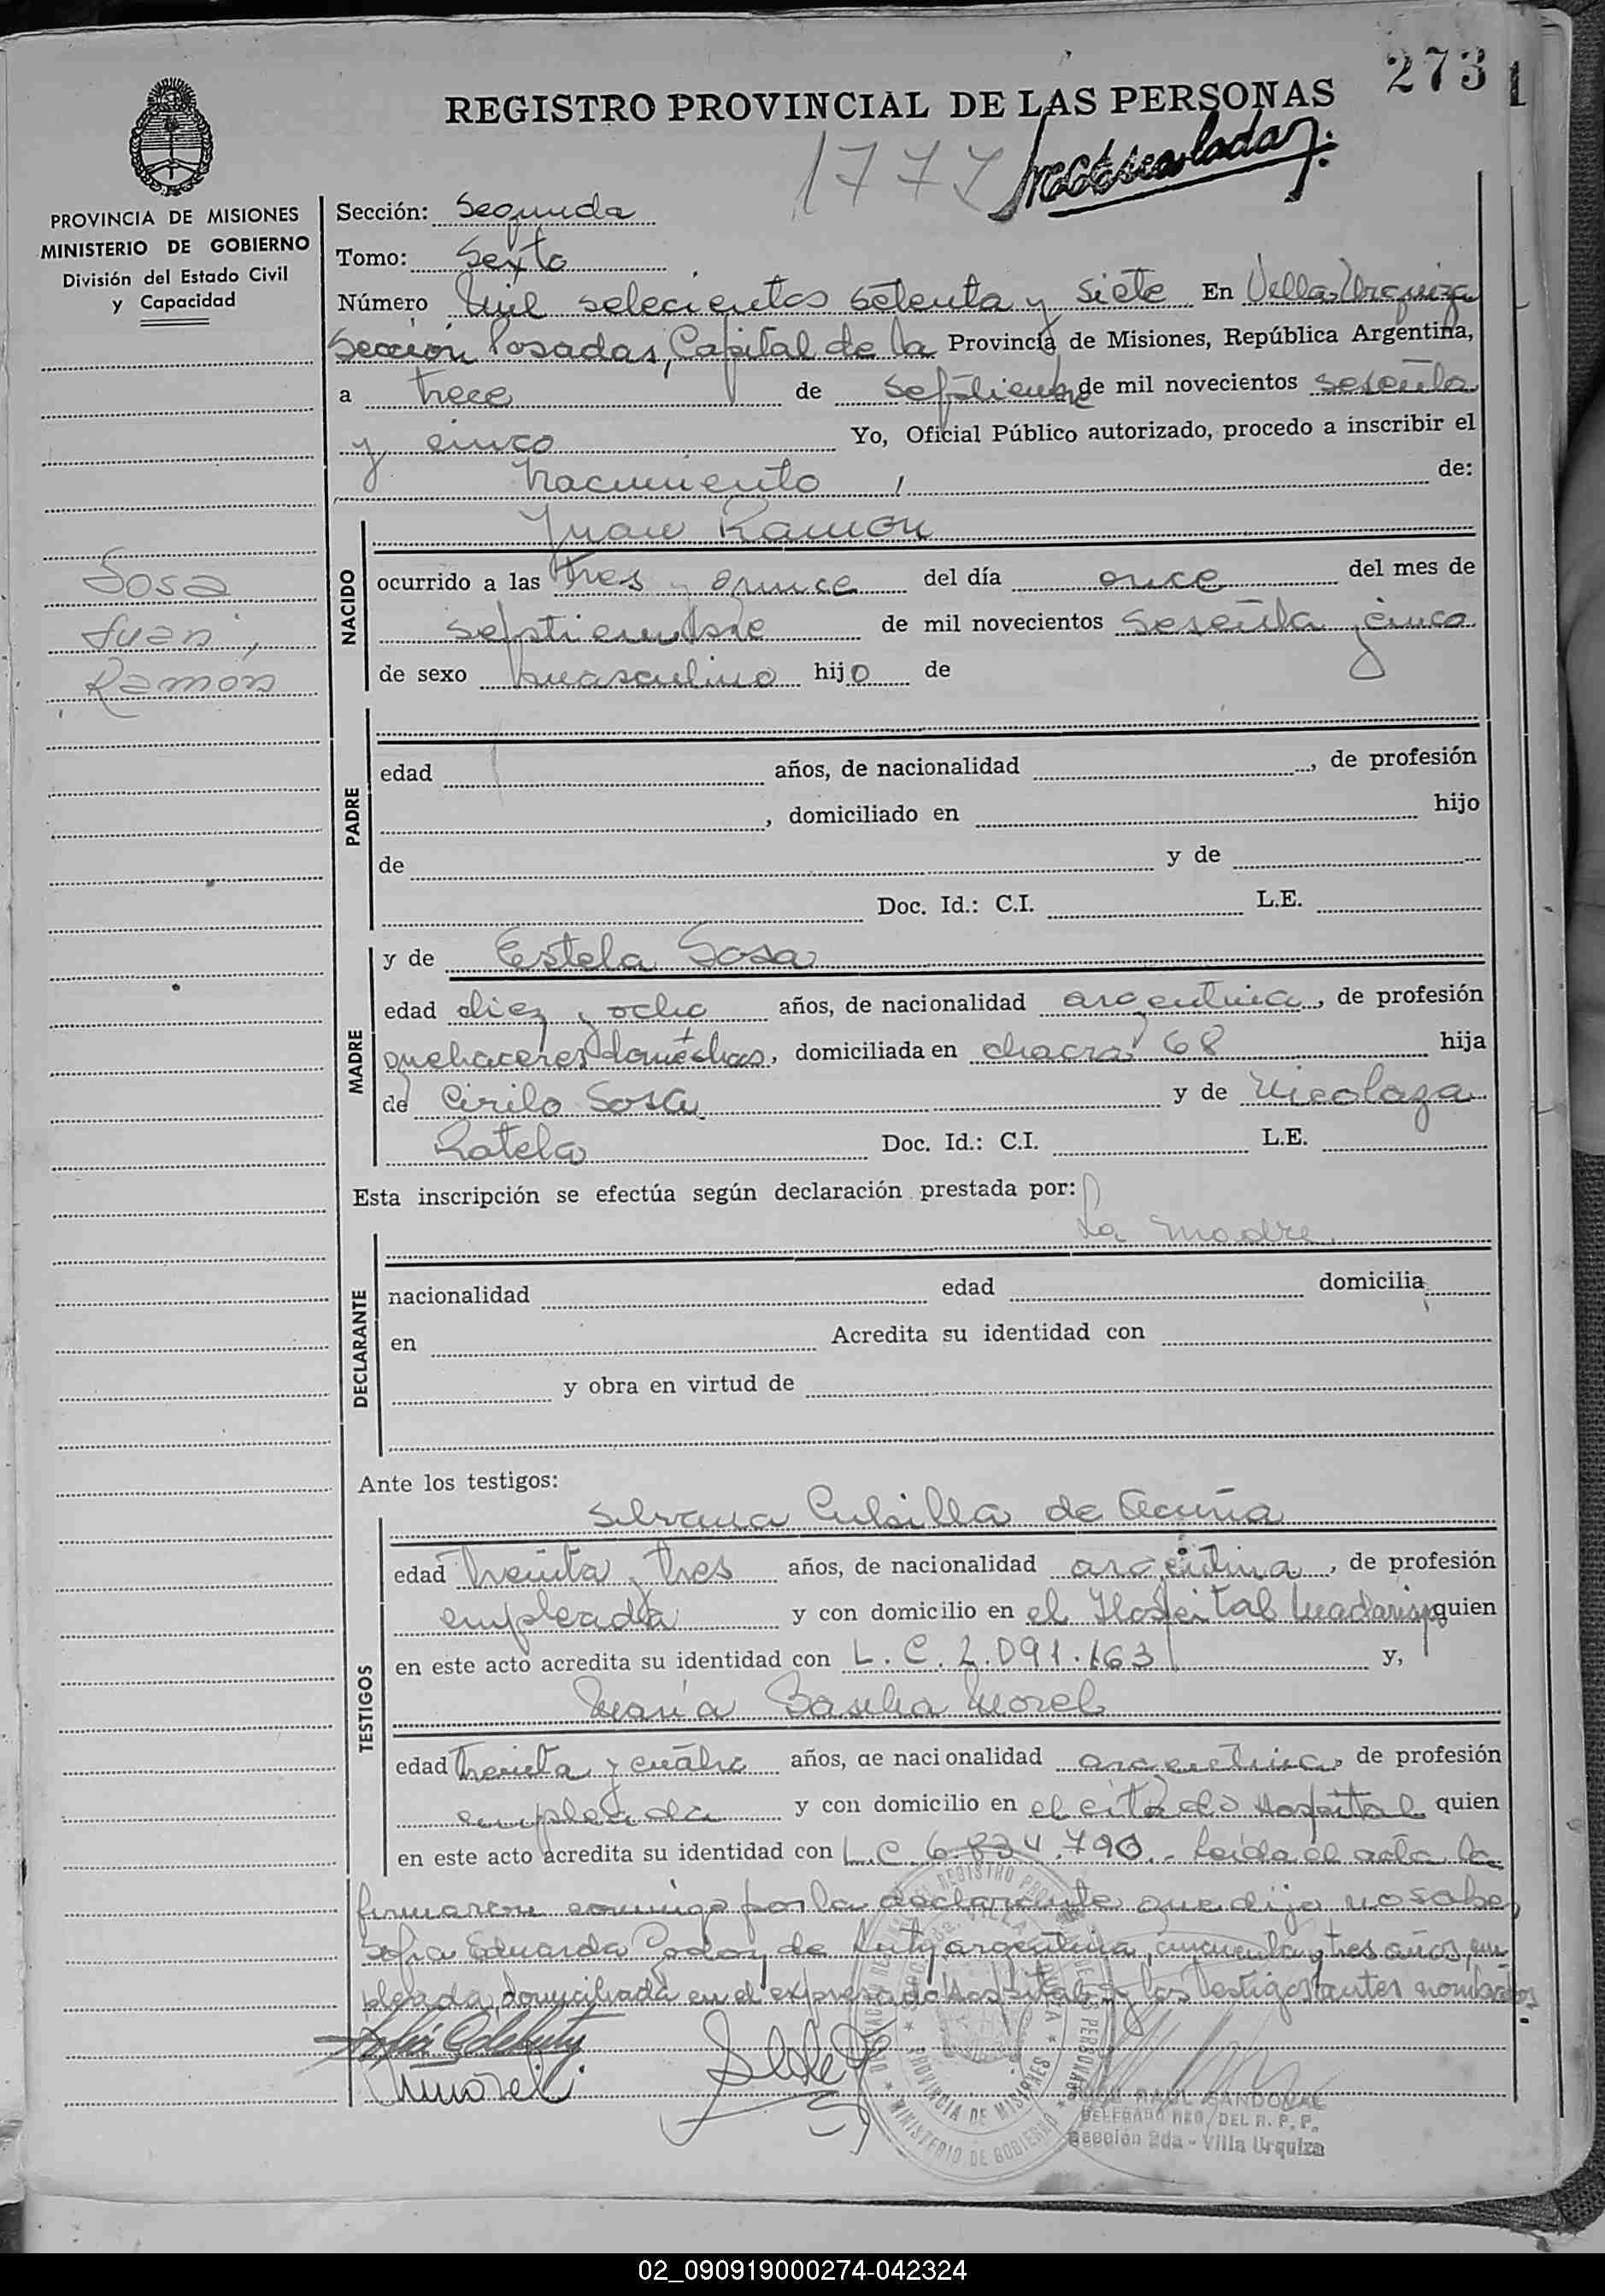 273 1
REGISTRO PROVINCIAL DE LAS PERSONAS
1777
PROVINCIA DE MISIONES
MINISTERIO DE GOBIERNO
División del Estado Civil
y Capacidad
Sección: Segunda
Tomo: Sexto
Número Mil setecientos setenta y siete En Villa Urquiza
Sección Posadas, Capital de la Provincia de Misiones, República Argentina,
a trece de septiembre de mil novecientos sesenta
y cinco Yo, Oficial Público autorizado, procedo a inscribir el
nacimiento de:
Juan Ramón
Sosa
Juan,
Ramón
NACIDO
ocurrido a las tres y quince del día once del mes de
septiembre de mil novecientos sesenta y cinco
de sexo masculino hijo de
PADRE
edad años, de nacionalidad , de profesión
, domiciliado en hijo
de y de
Doc. Id.: C.I. L.E.
MADRE
y de Estela Sosa
edad diez y ocho años, de nacionalidad argentina, de profesión
quehaceres domésticos, domiciliada en chacra 68 hija
de Cirilo Sosa y de Nicolaza
Rotela Doc. Id.: C.I. L.E.
Esta inscripción se efectúa según declaración prestada por:
La madre
DECLARANTE
nacionalidad edad domicilia
en Acredita su identidad con
y obra en virtud de
Ante los testigos:
TESTIGOS
Silvana Cubilla de Acuña
edad treinta y tres años, de nacionalidad argentina, de profesión
empleada y con domicilio en el Hospital Madariaga quien
en este acto acredita su identidad con L.C. 2.091.163 y,
María Morel
edad treinta y cuatro años, de nacionalidad argentina, de profesión
empleada y con domicilio en el citado Hospital quien
en este acto acredita su identidad con L.C 6.834.790.- Leida el acta la
firmaron conmigo por la declarante que dijo no saber,
Sofia Eduarda Godoy de argentina, cincuenta y tres años, em
pleada, domiciliada en el expresado Hospital y los testigos antes nombrados
PROVINCIA DE MISIONES
MINISTERIO DE GOBIERNO
RAUL SANDOVAL
DELEGADO REG. DEL R. P. P.
Sección 2da - Villa Urquiza
02_090919000274-042324